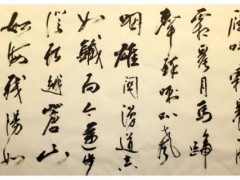 霜晨月馬蹄
聲碎喇叭聲
咽雄關漫道真
如鐵而今邁步
從頭越蒼山
如海殘陽如